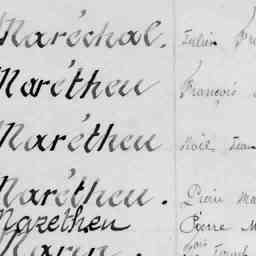 Maréchal. Julien
Marétheu François
Marétheu Noël Jean
Marétheu. Pierre Ma
Mazetheu Pierre M
Marin